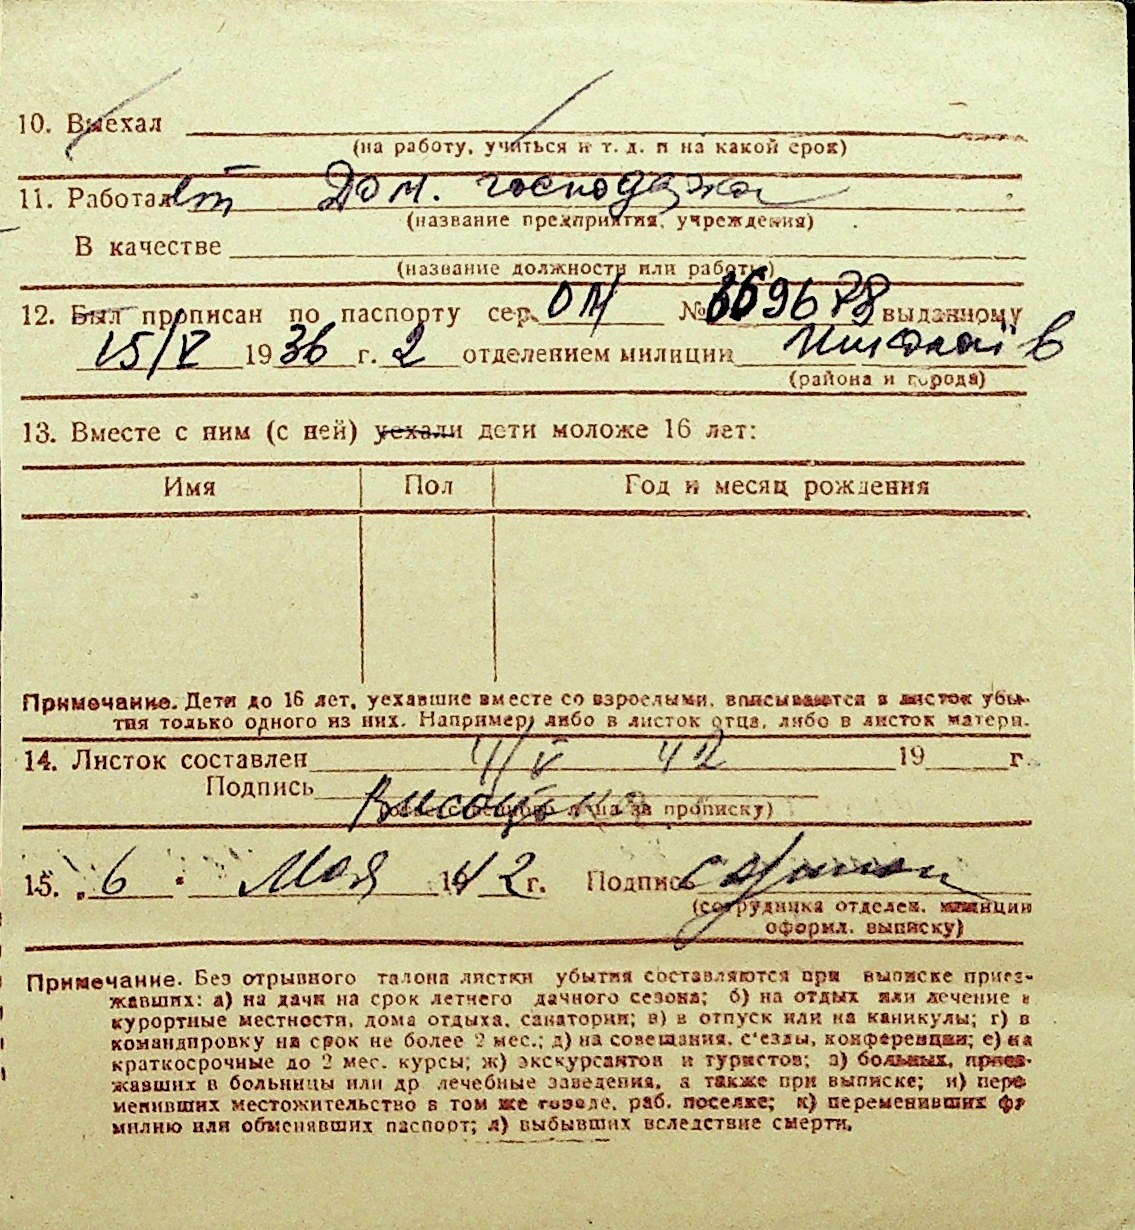 10. Выехал
(на работу, учиться и т. д. и на какой срок)
11. Работает Дом. господарка
(название предприятия, учреждения)
В качестве
(название должности или работы)
12. Был прописан по паспорту сер. ОМ № 669678 выданному
15/V 1936 г. 2 отделением милиции Николаїв
(района и города)
13. Вместе с ним (с ней) уехали дети моложе 16 лет:
Имя Пол Год и месяц рождения
Примечание. Дети до 16 лет, уехавшие вместе со взрослыми, вписываются в листок убы-
тия только одного из них. Например, либо в листок отца, либо в листок матери.
14. Листок составлен 4/V 42 19 г.
Подпись
(ответственного лица за прописку)
15. „6 " Мая 1942 г. Подпись
(сотрудника отделен. милиции
оформл. выписку)
Примечание. Без отрывного талона листки убытия составляются при выписке приез-
жавших: а) на дачи на срок летнего дачного сезона; б) на отдых или лечение в
курортные местности, дома отдыха, санатории; в) в отпуск или на каникулы; г) в
командировку на срок не более 2 мес.; д) на совещания, с'езды, конференции; е) на
краткосрочные до 2 мес. курсы; ж) экскурсантов и туристов; з) больных, приез-
жавших в больницы или др лечебные заведения, а также при выписке; и) пере
менивших местожительство в том же городе, раб. поселке; к) переменивших фа
милию или обменявших паспорт; л) выбывших вследствие смерти.